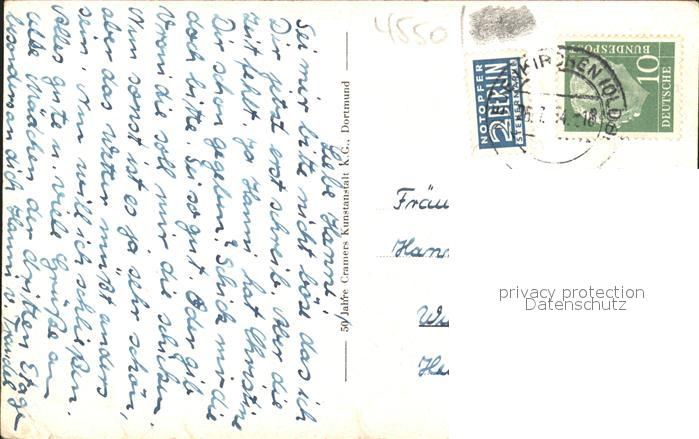 Liebe Hanni!
Sei mir bitte nicht böse das ich
Dir jetzt erst schreib. Aber die
Zeit fehlt. Ja Hanni hat Christine
Dir schon gegeben? Schick mir die
doch bitte. Sei so gut. Oder gib
Vroni die soll mir die schicken.
Nun sonst ist es ja sehr schön,
aber das Wetter müßt anders
sein. Nun will ich schließen.
Alles gute u. viele Grüße an
alle Mädchen der dritten Etage
besonders an dich Hanni v.
50 Jahre Cramers Kunstanstalt K.G., Dortmund
4550
NOTOPFER
2 BERLIN
STEUERMARKE
10
DEUTSCHE
BUNDESPOST
KIRCHEN (OLDB)
Fräu
Hann
Wu
privacy protection
Datenschutz